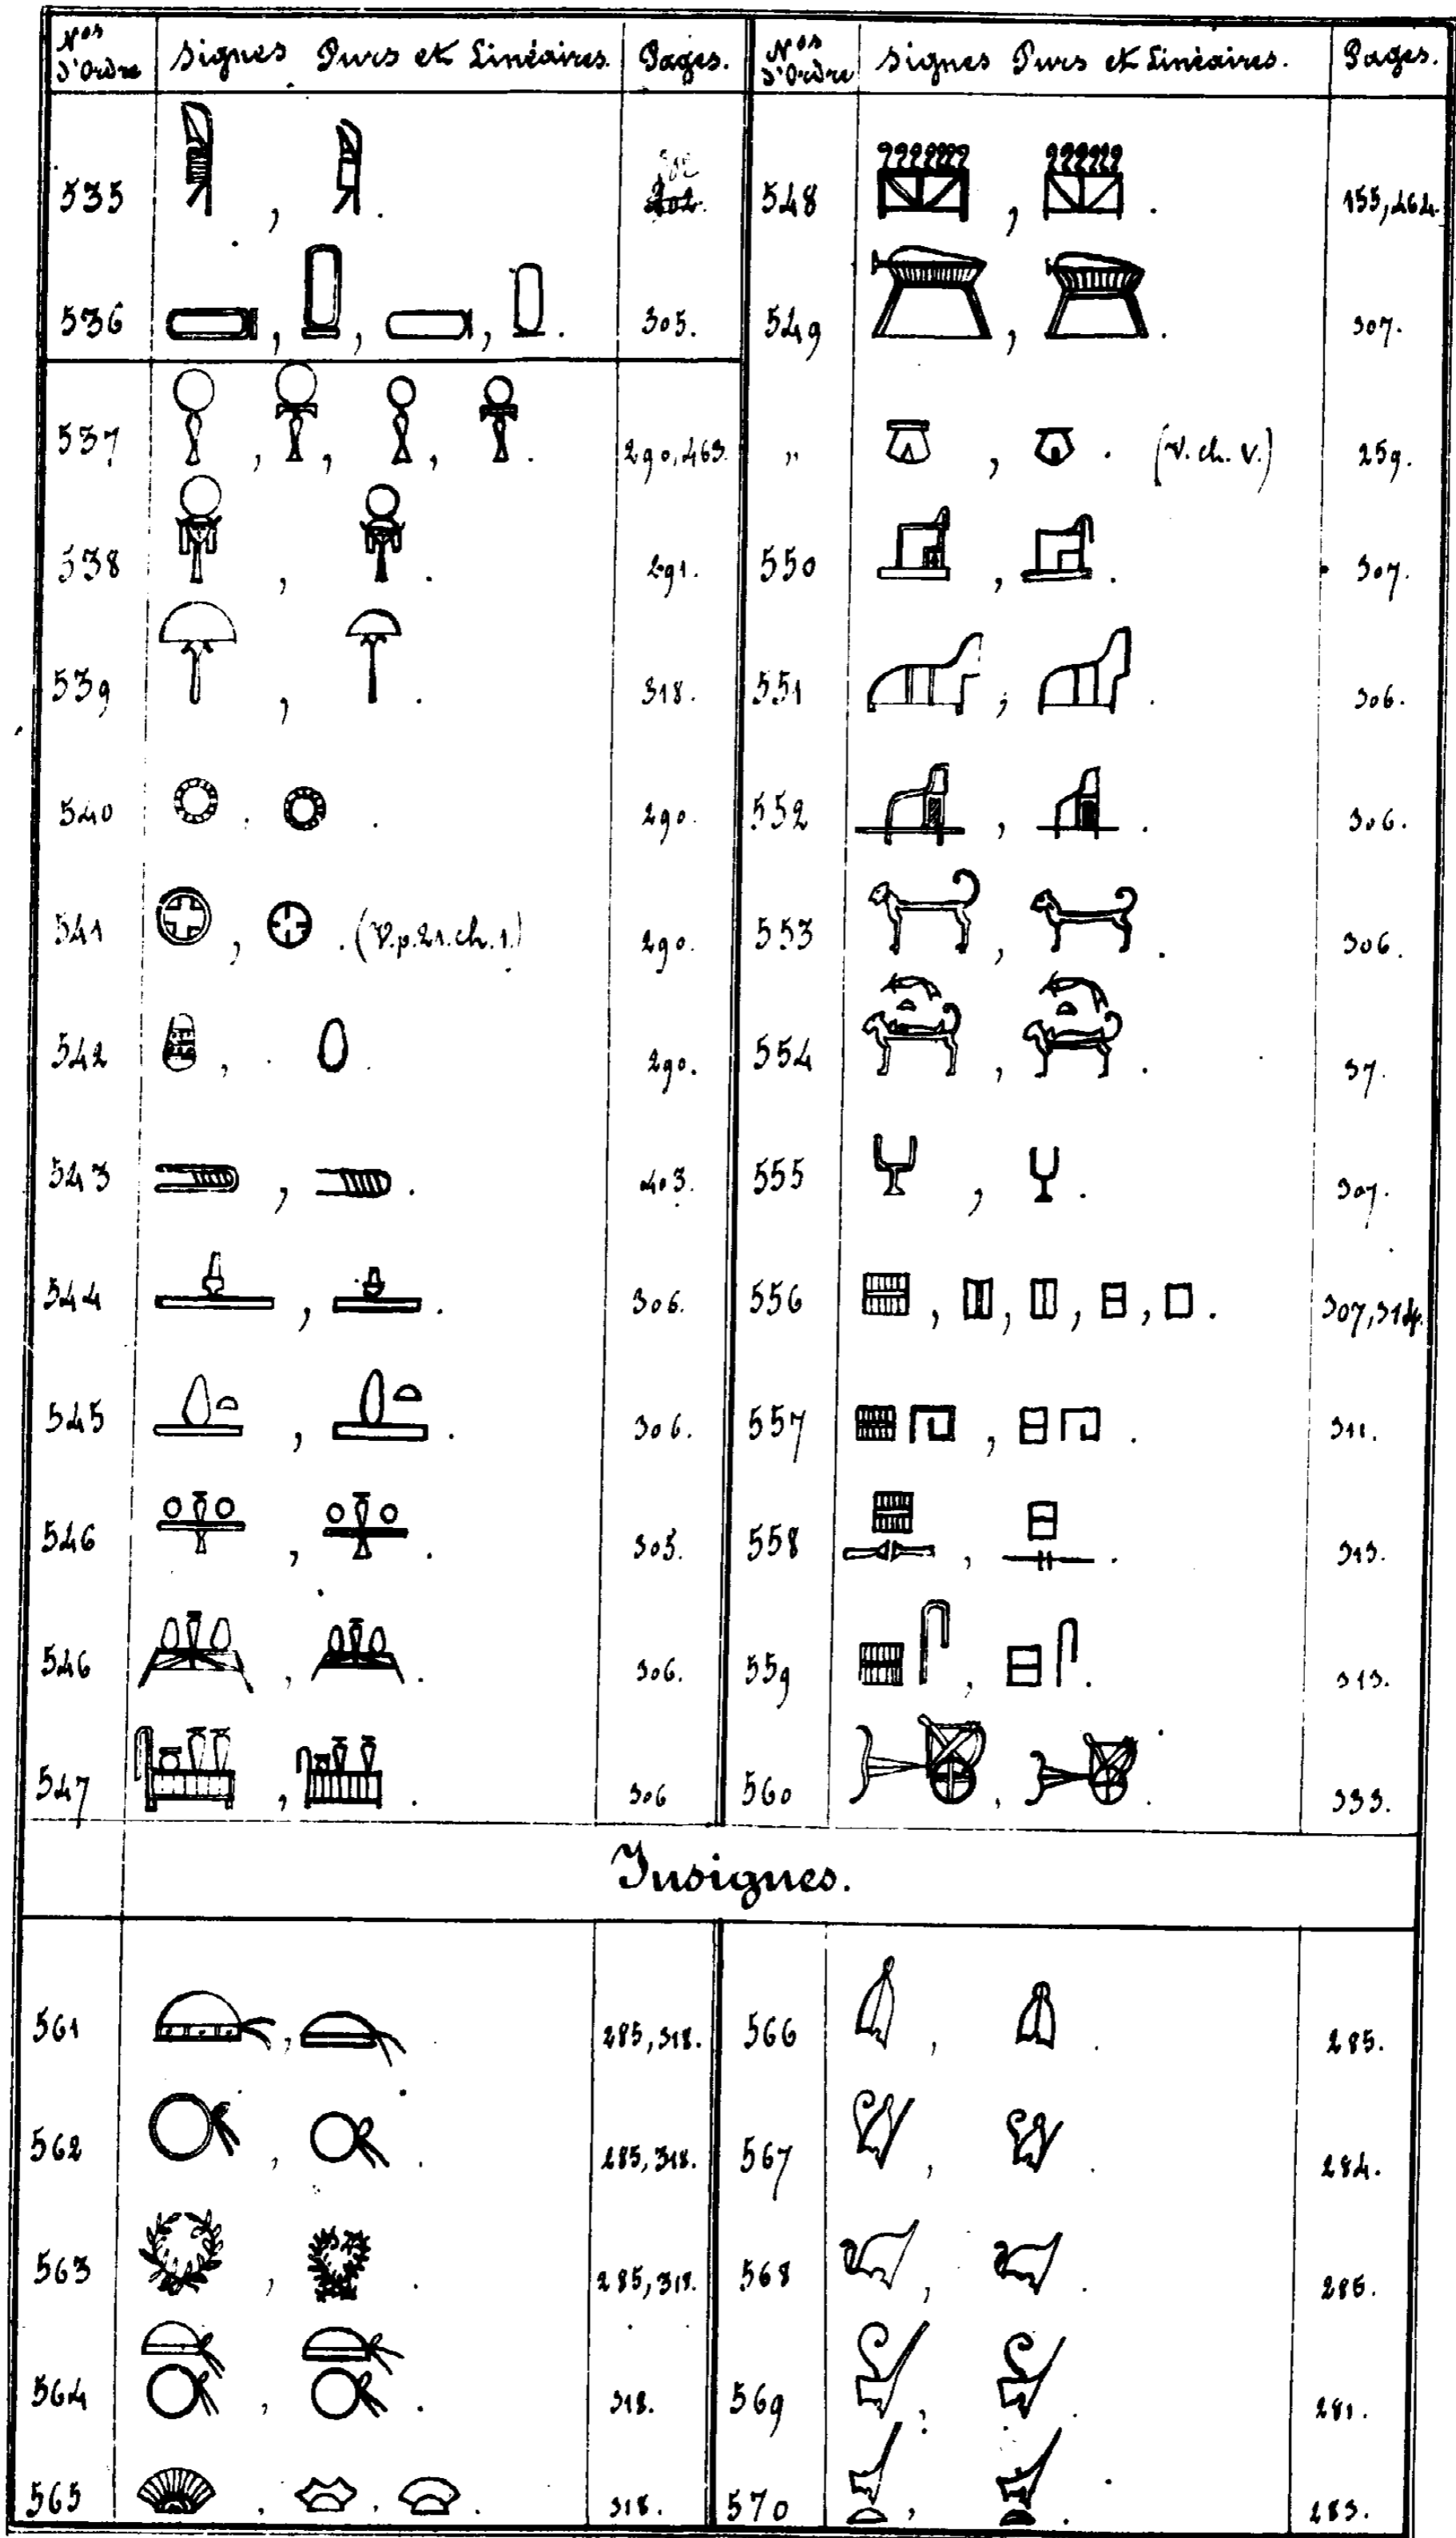 Nos d'Ordre Signes Purs et Linéaires. Pages.
535 , .
536 , , , . 305.
537 , , , . 290, 463.
538 , . 291.
539 , . 318.
540 . . 290.
541 , . (V. p. 21. ch. 1.) 290.
542 , . 290.
543 , . 403.
544 , . 306.
545 , . 306.
546 , . 305.
546 , . 306.
547 , . 306
Nos d'Ordre Signes Purs et Linéaires. Pages.
548 , . 155, 464.
549 , . 307.
„ , . (V. ch. V.) 259.
550 , . 307.
551 , . 306.
552 , . 306.
553 , . 306.
554 , . 37.
555 , . 307.
556 , , , , . 307, 314.
557 , . 311.
558 , . 313.
559 , . 313.
560 , . 333.
Insignes.
561 , 285, 318.
562 , . 285, 318.
563 , . 285, 318.
564 , . 318.
565 , , . 318.
566 , . 285.
567 , . 284.
568 , . 285.
569 , . 281.
570 , . 283.